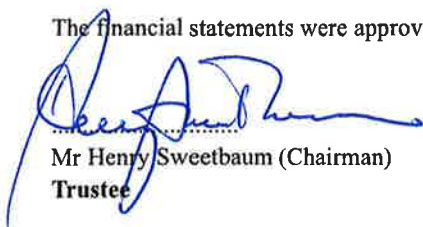 The financial statements were approv
Mr Henry Sweetbaum (Chairman)
Trustee